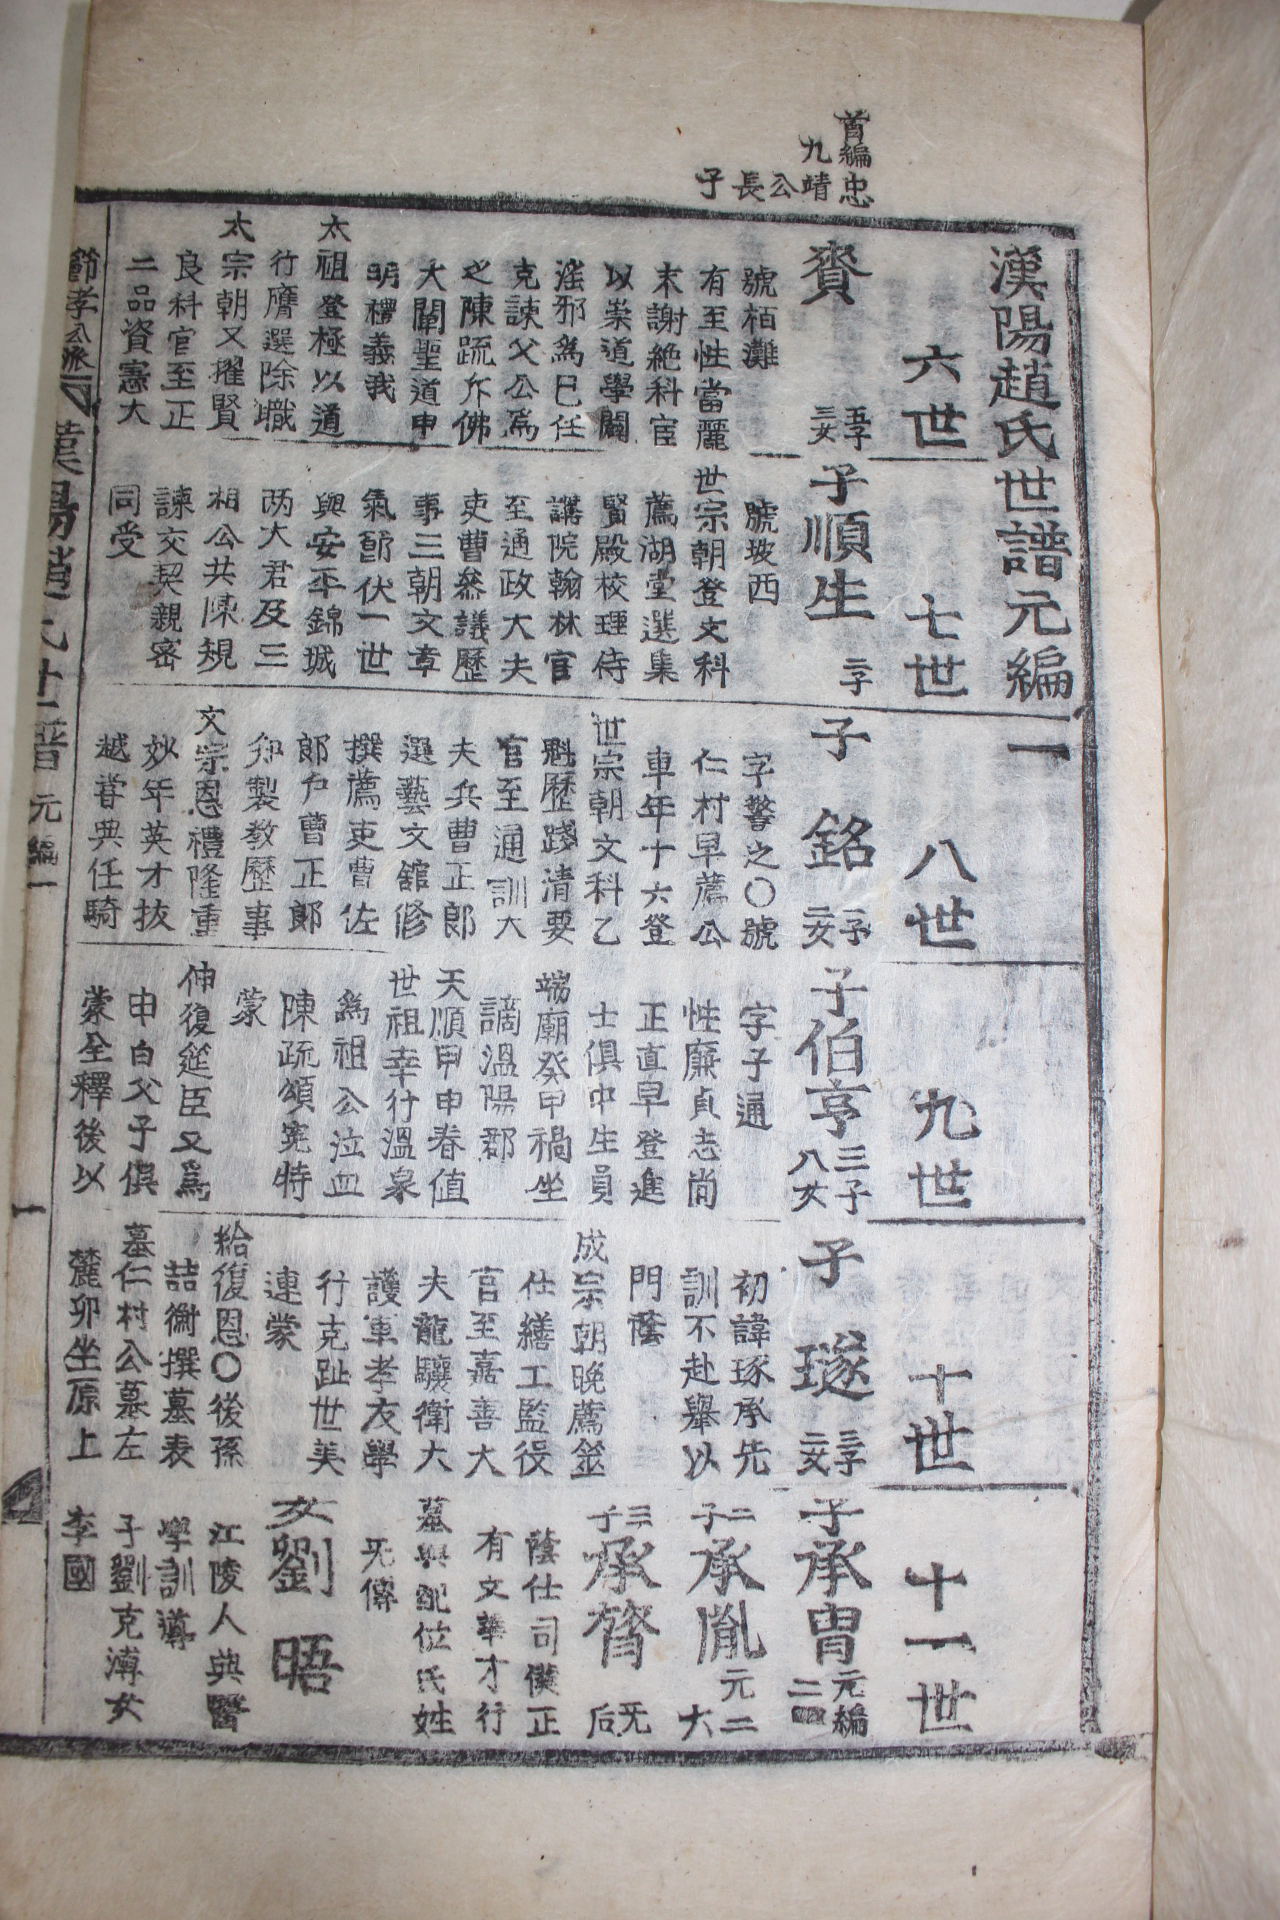 首編忠
九靖
公
長
子
漢陽趙氏世譜元編一
六世
賚
五子
三女
號栢灘
有至性當麗
末謝絶科宦
以崇道學闢
滛邪爲巳任
克諫父公爲
之陳疏斥佛
大闡聖道申
明禮義我
太祖登極以道
行膺選除職
太宗朝又擢賢
良科官至正
二品資憲大
七世
子順生
二子
號坡西
世宗朝登文科
薦湖堂選集
賢殿校理侍
講院翰林官
至通政大夫
吏曹叅議歷
事三朝文章
氣節伏一世
與安平錦城
两大君及三
相公共陳規
諫交契親密
同受
八世
子銘
二子
二女
字警之〇號
仁村早薦公
車年十六登
世宗朝文科乙
魁歷踐清要
官至通訓大
夫兵曹正郎
選藝文舘修
撰薦吏曹佐
郎户曹正郎
知製敎歷事
文宗恩禮隆重
妙年英才抜
越甞典任騎
九世
子伯亨
三子
八女
字子通
性廉貞志尚
正直早登進
士俱中生員
端廟癸甲禍坐
謫溫陽郡
天順甲申春值
世祖幸行溫泉
爲祖公泣血
陳疏頌寃特
蒙
伸復筵臣又爲
申白父子俱
蒙全釋後以
十世
子璲
三子
二女
初諱琢承先
訓不赴舉以
門蔭
成宗朝晩薦筮
仕繕工監役
官至嘉善大
夫龍驤衛大
護軍孝友學
行克趾世美
連蒙
給復恩〇後孫
喆衡撰墓表
墓仁村公墓左
麓卯坐原上
十一世
子承冑
元編
二
二子承胤
元二
大
三子承膂
无
后
蔭仕司僕正
有文華才行
墓與配位氏姓
旡傳
女劉晤
江陵人典醫
學訓導
子劉克溥女
李國
節孝公派 漢陽趙氏世譜 元編一 一